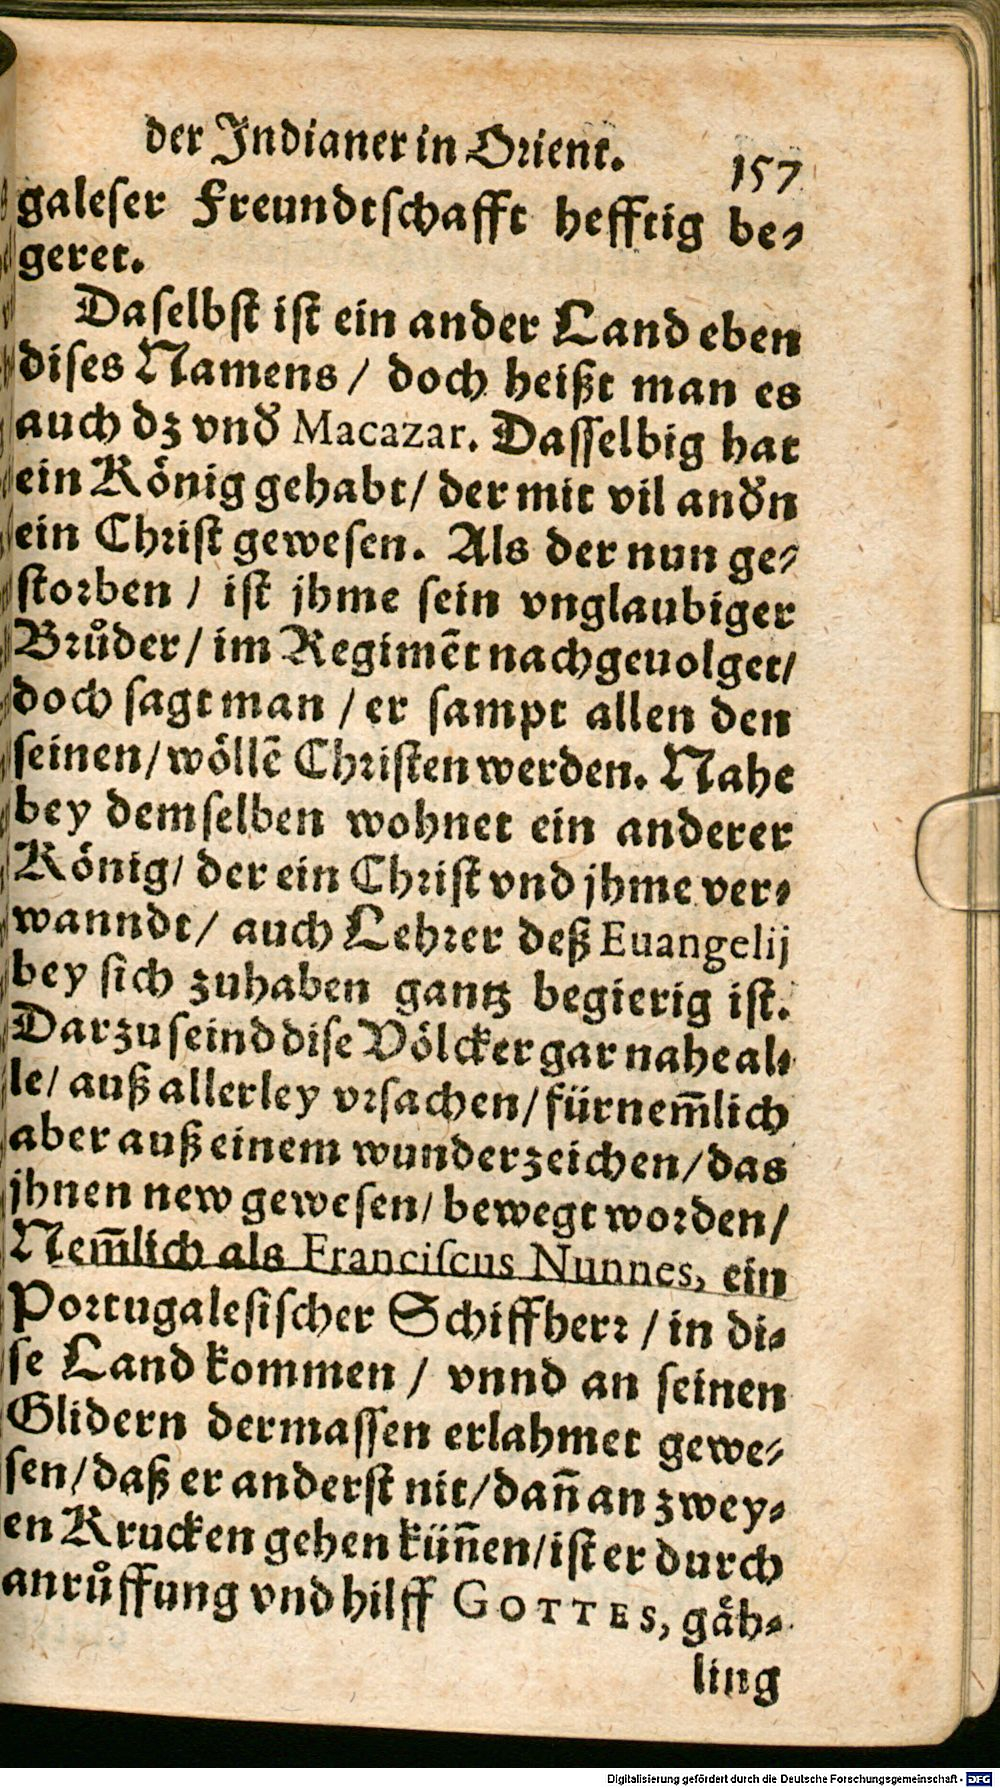 der Indianer in Orient. 157
galeser Freundtschafft hefftig be⸗
geret.
Daselbst ist ein ander Land eben
dises Namens / doch heißt man es
auch dz vnd̕ Macazar. Dasselbig hat
ein König gehabt / der mit vil and̕n
ein Christ gewesen. Als der nun ge⸗
storben / ist jhme sein vnglaubiger
Brůder / im Regimēt nachgeuolget /
doch sagt man / er sampt allen den
seinen / wöllē Christen werden. Nahe
bey demselben wohnet ein anderer
König / der ein Christ vnd jhme ver⸗
wanndt / auch Lehrer deß Euangelij
bey sich zuhaben gantz begierig ist.
Darzu seind dise Völcker gar nahe al⸗
le / auß allerley vrsachen / fürnem̄lich
aber auß einem wunderzeichen / das
jhnen new gewesen / bewegt worden /
Nem̄lich als Franciscus Nunnes, ein
Portugalesischer Schiffherr / in di⸗
se Land kommen / vnnd an seinen
Glidern dermassen erlahmet gewe⸗
sen / daß er anderst nit / dan̄ an zwey⸗
en Krucken gehen kün̄en / ist er durch
anrůffung vnd hilff GOTTES, gäh⸗
ling
Digitalisierung gefördert durch die Deutsche Forschungsgemeinschaft - DFG